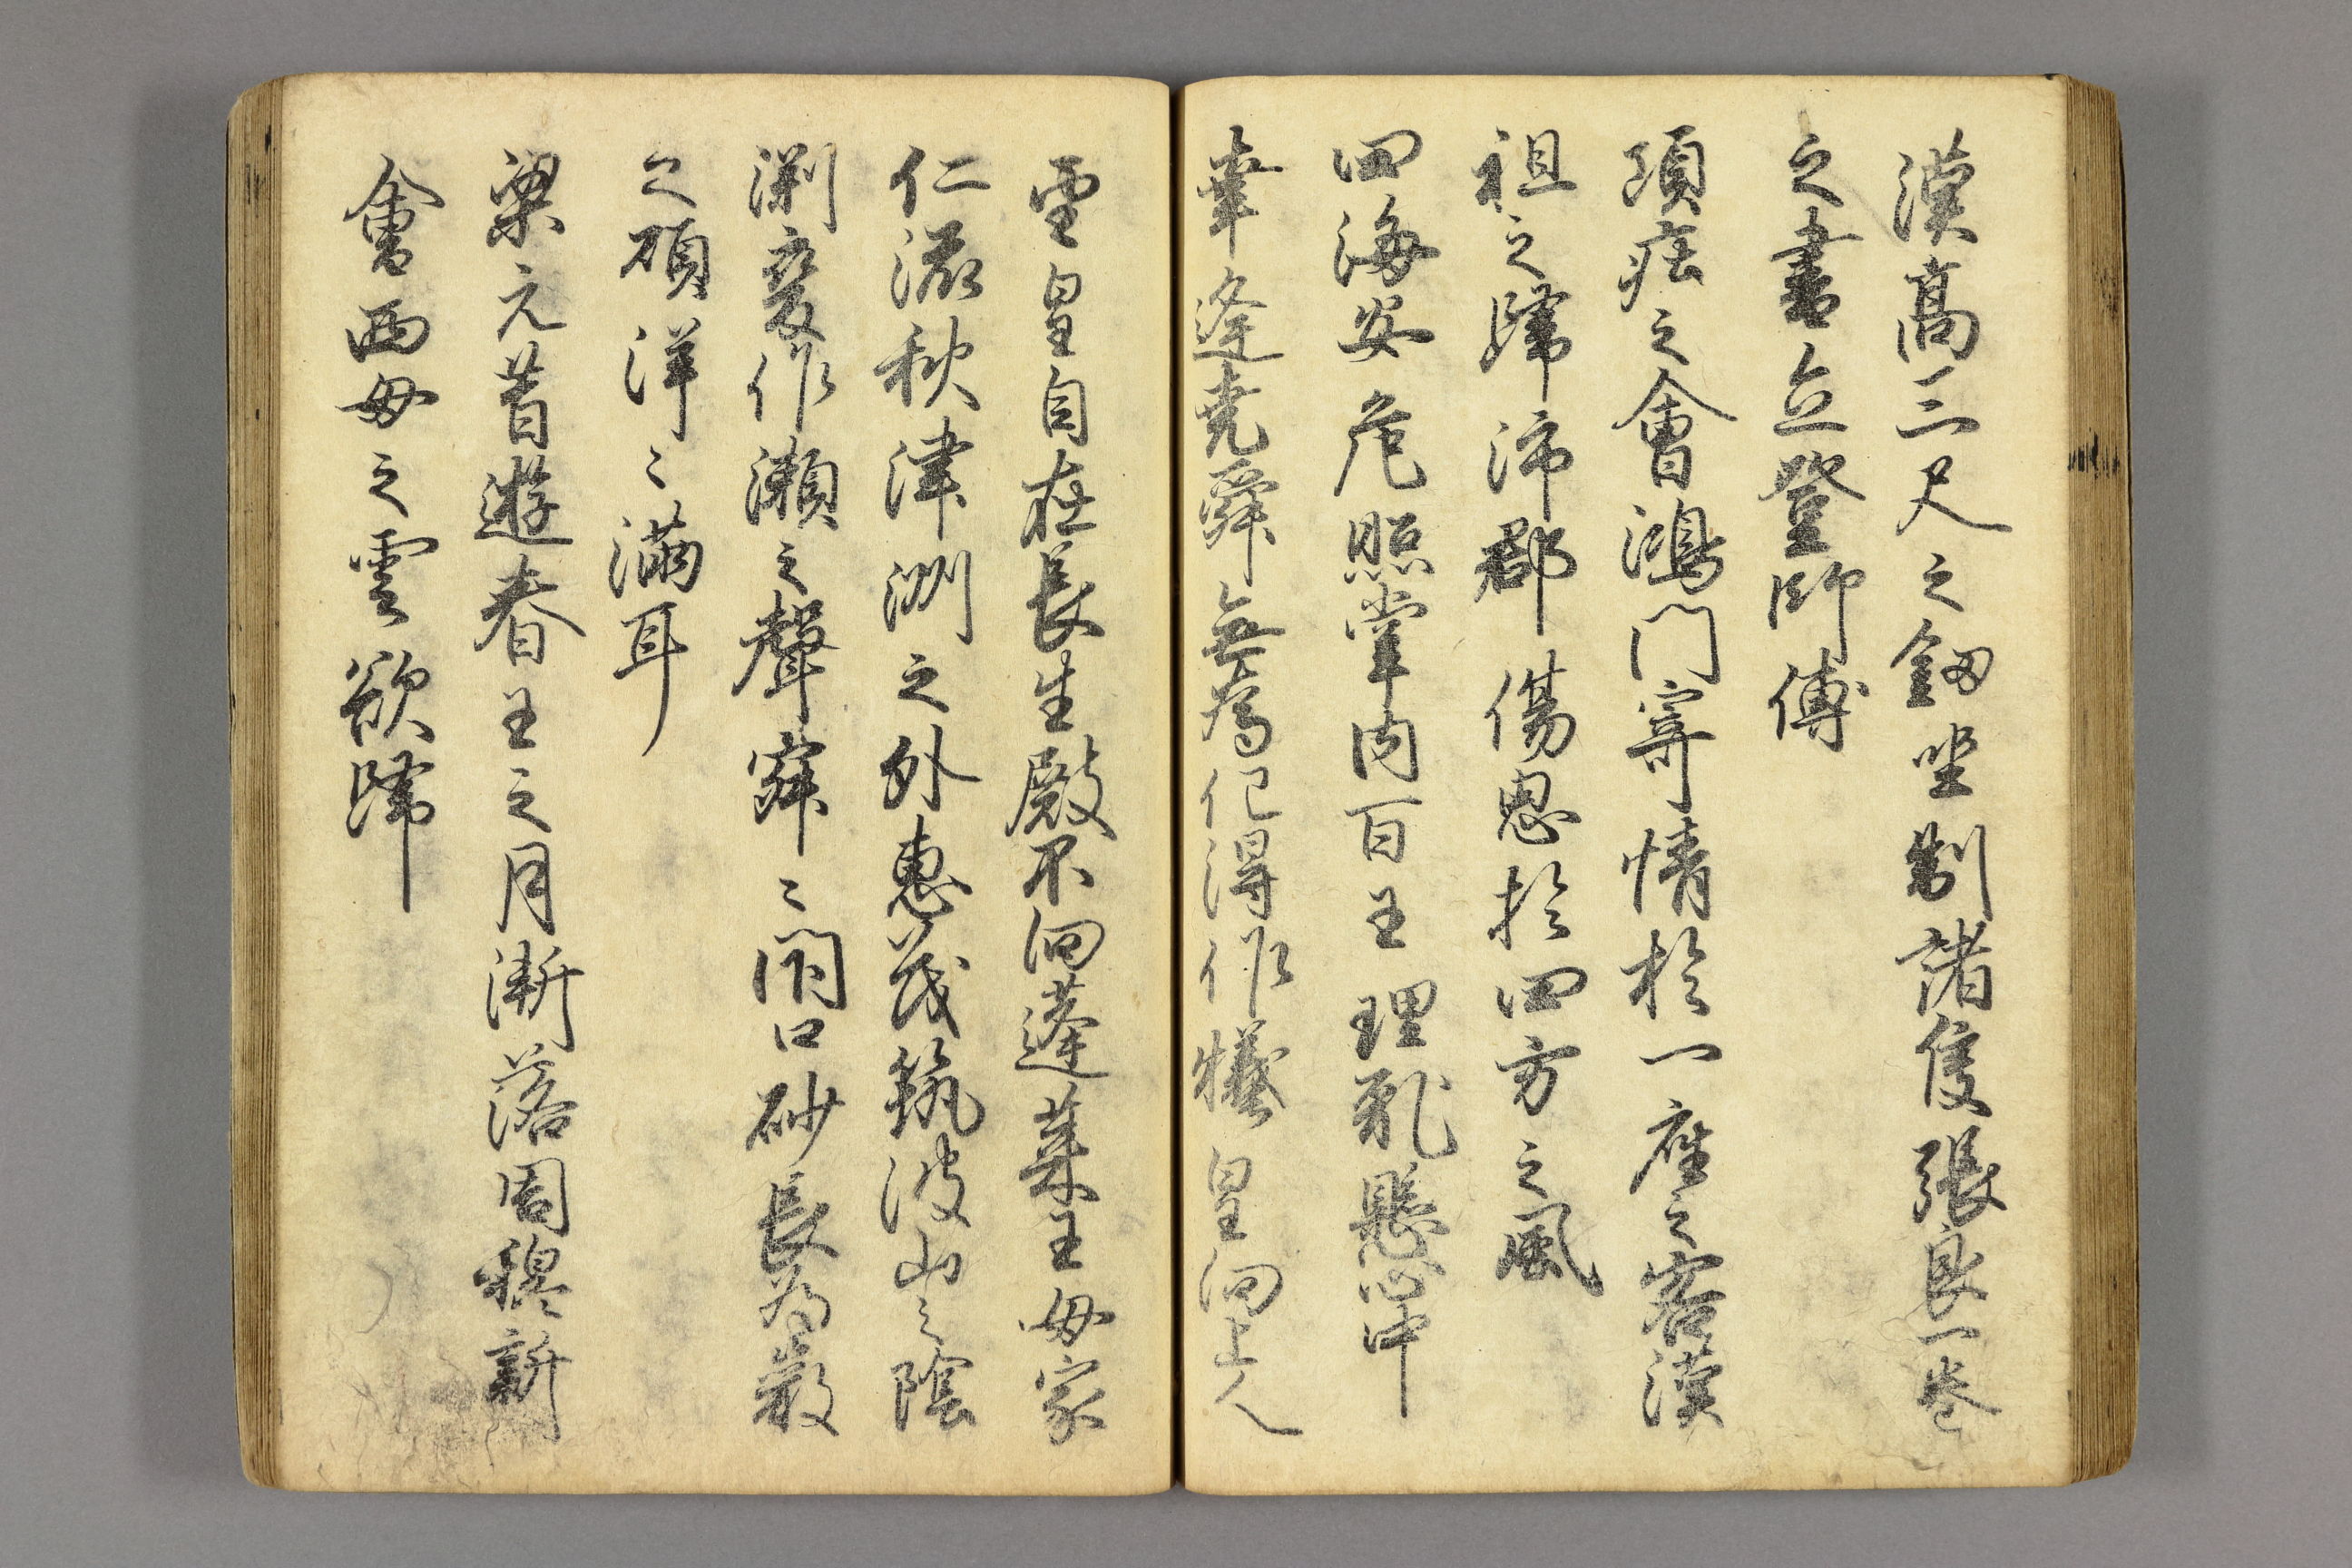 漢高三尺之釼坐制諸侯張良一巻
之書立登師傅
項荘之會鴻門寄情於一座之客漢
祖之歸沛郡傷思於四方之風
四海安危照掌内百王理乱懸心中
幸逢尭舜無為化得作犠皇向上人
雲皇自在長生殿不向蓬萊王母家
仁流秋津洲之外恵茂筑波山之陰
渕変作瀬之聲寂〻閇口砂長為巌
之頌洋〻満耳
梁元昔遊春王之月漸落周穆新
會西母之雲欲歸